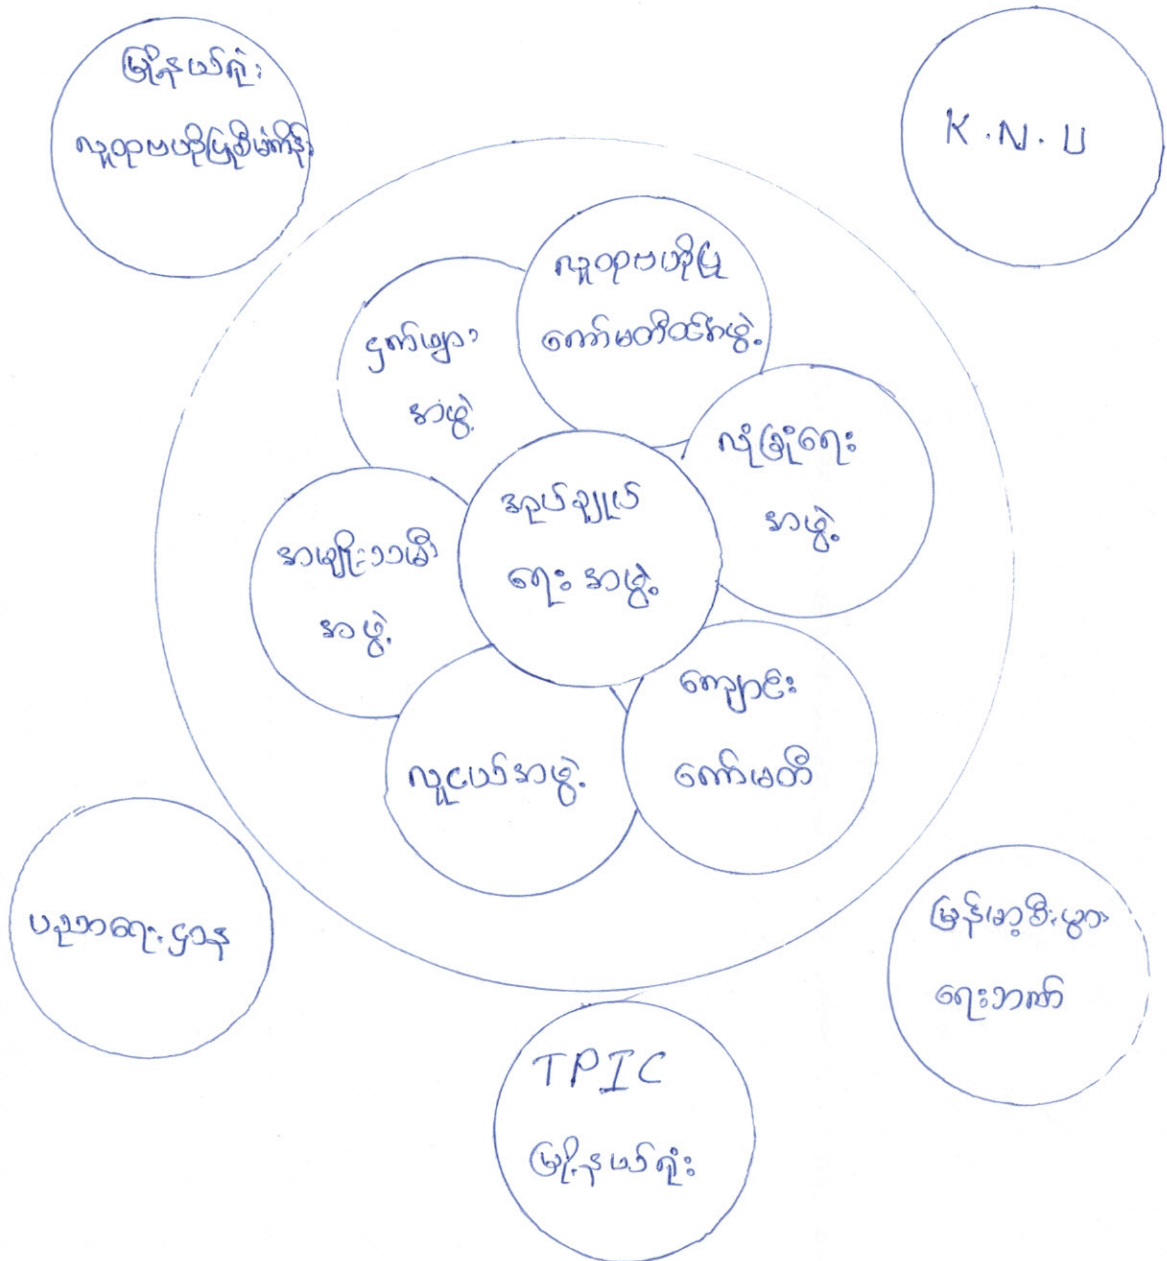 မြို့နယ်ရုံး
လူထုဗဟိုပြုစီမံကိန်း
K.N.U
လူထုဗဟိုပြု
ကော်မတီဝင်အဖွဲ့
ငှက်ဖျား
အဖွဲ့
လုံခြုံရေး
အဖွဲ့
အုပ်ချုပ်
ရေး အဖွဲ့
အမျိုးသမီး
အဖွဲ့
ကျောင်း
ကော်မတီ
လူငယ်အဖွဲ့
ပညာရေးဌာန
မြန်မာ့စီးပွား
ရေးဘဏ်
TPIC
မြို့နယ်ရုံး